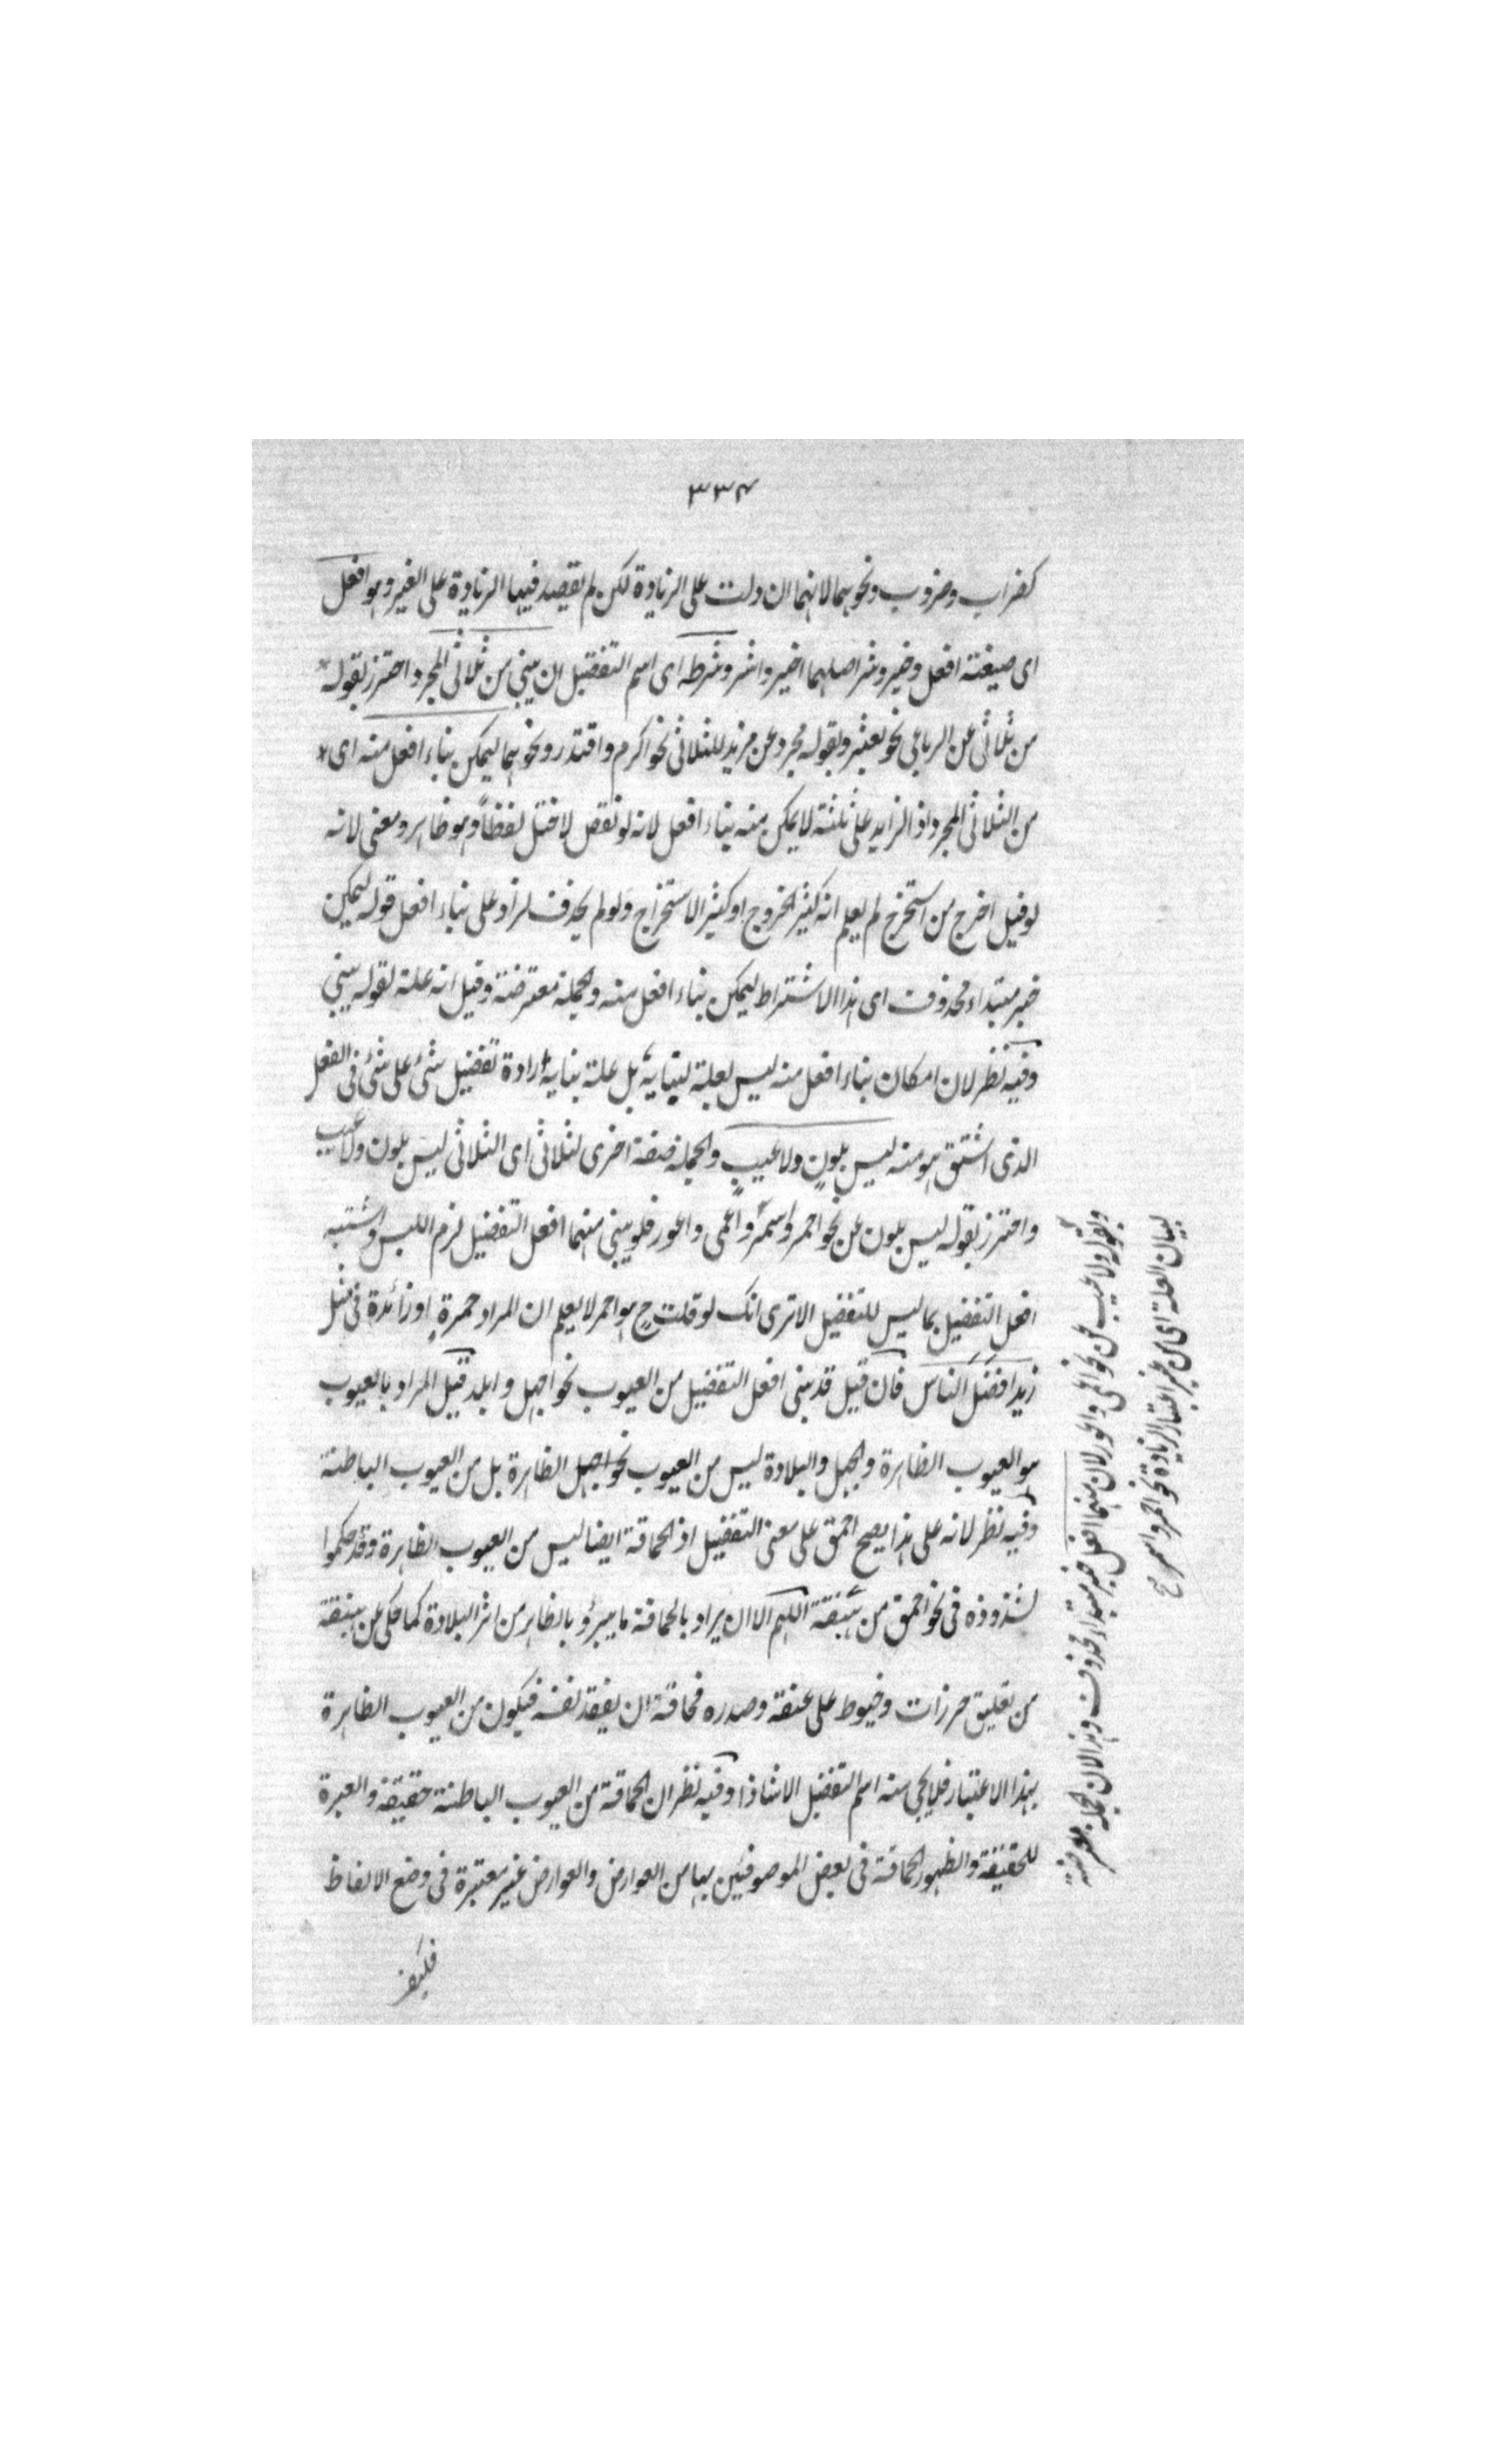 ٣٣٤
كضراب وضروب ونحوهما لانهما ان دلت على الزيادة لكن لم يقصد فيها الزيادة على الغير وهو افعل
اى صيغة افعل وخير وشر اصلهما اخير واشر وشرطه اى اسم التفضيل ان يبنى من ثلاثى المجرد واحترز بقوله
من ثلاثى عن الرباعى نحو بعثر وبقوله مجرد عن مزيد للثلاثى نحو اكرم واقتدر ونحوهما ليمكن بناء افعل منه اى
من الثلاثى المجرد اذ الزايد على ثلثة لا يمكن منه بناء افعل لانه لو نقص لاختل لفظاً وهو ظاهر ومعنى لانه
لو قيل اخرج من استخرج لم يعلم انه كثير الخروج او كثير الاستخراج ولو لم يحذف لزاد على بناء افعل قوله ليمكن
خبر مبتداء محذوف اى هذا الاشتراط ليمكن بناء افعل منه والجملة معترضة وقيل انه علة لقوله يبنى
وفيه نظر لان امكان بناء افعل منه ليس لعلة لبنايه بل علة بنايه ارادة تفضيل شئ على شئ فى الفعل
الذى اشتق هو منه ليس بلونٍ ولا عيبٍ والجملة صفة اخرى لثلاثى اى الثلاثى ليس بلون ولا عيب
واحترز بقوله ليس بلون عن نحو احمر واسمر واعمى واعور فلو يبنى منهما افعل التفضيل لزم اللبس واشتبه
افعل التفضيل بما ليس للتفضيل الا ترى انك لو قلت ح هو احمر لا يعلم ان المراد حمرةٍ او زائدة فى مثل
زيد افضل الناس فان قيل قد يبنى افعل التفضيل من العيوب نحو اجهل وابلد قيل المراد بالعيوب
هو العيوب الظاهرة والجهل والبلادة ليس من العيوب نحو اجهل الظاهرة بل من العيوب الباطنة
وفيه نظر لانه على هذا يصح احمق على معنى التفضيل اذ الحماقة ايضا ليس من العيوب الظاهرة وقد حكموا
لشذوذه فى نحو احمق من هبنقة اللهم الا ان يراد بالحماقة ما يبرؤ بالظاهر من اثر البلادة كما حكى عن هبنقة
من تعليق حرزات وخيوط على عنقه وصدره مخافة ان يفقد نفسه فيكون من العيوب الظاهرة
بهذا الاعتبار فلا يجئ منه اسم التفضيل الا شاذا وفيه نظر ان الحماقة من العيوب الباطنة حقيقة والعبرة
للحقيقة والظهور الحماقة فى بعض الموصوفين بها من العوارض والعوارض غير معتبرة فى وضع الالفاظ
وبقوله ولا عيب عن نحو اعمى واعور لان منهما افعل خبر مبتداء محذوف وهذا لان الجملة معترضة
لبيان العلة اى من غير اعتبار الزيادة نحو احمر واسمر ح